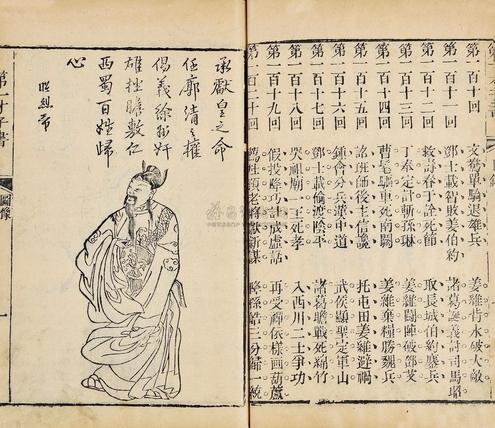 第一百十回 文鴦單騎退雄兵 姜維背水破大敵
第一百十一回 鄧士載智敗姜伯約 諸葛誕義討司馬昭
第一百十二回 救壽春于詮死節 取長城伯約鏖兵
第一百十三回 丁奉定計斬孫琳 姜維鬭陣破鄧艾
第一百十四回 曹髦驅車死南闕 姜維棄糧勝魏兵
第一百十五回 詔班師後主信讒 托屯田姜維避禍
第一百十六回 鍾會分兵漢中道 武侯顯聖定軍山
第一百十七回 鄧士載偷渡陰平 諸葛瞻戰死綿竹
第一百十八回 哭祖廟一王死孝 入西川二士爭功
第一百十九回 假投降巧計成虛話 再受禪依樣畫葫蘆
第一百二十回 薦杜預老將獻新謀 降孫皓三分歸一統
承獻皇之命
任廓清之權
倡義徐州奸
雄挫膽敷仁
西蜀百姓歸
心
昭烈帝
第一才子書 圖像